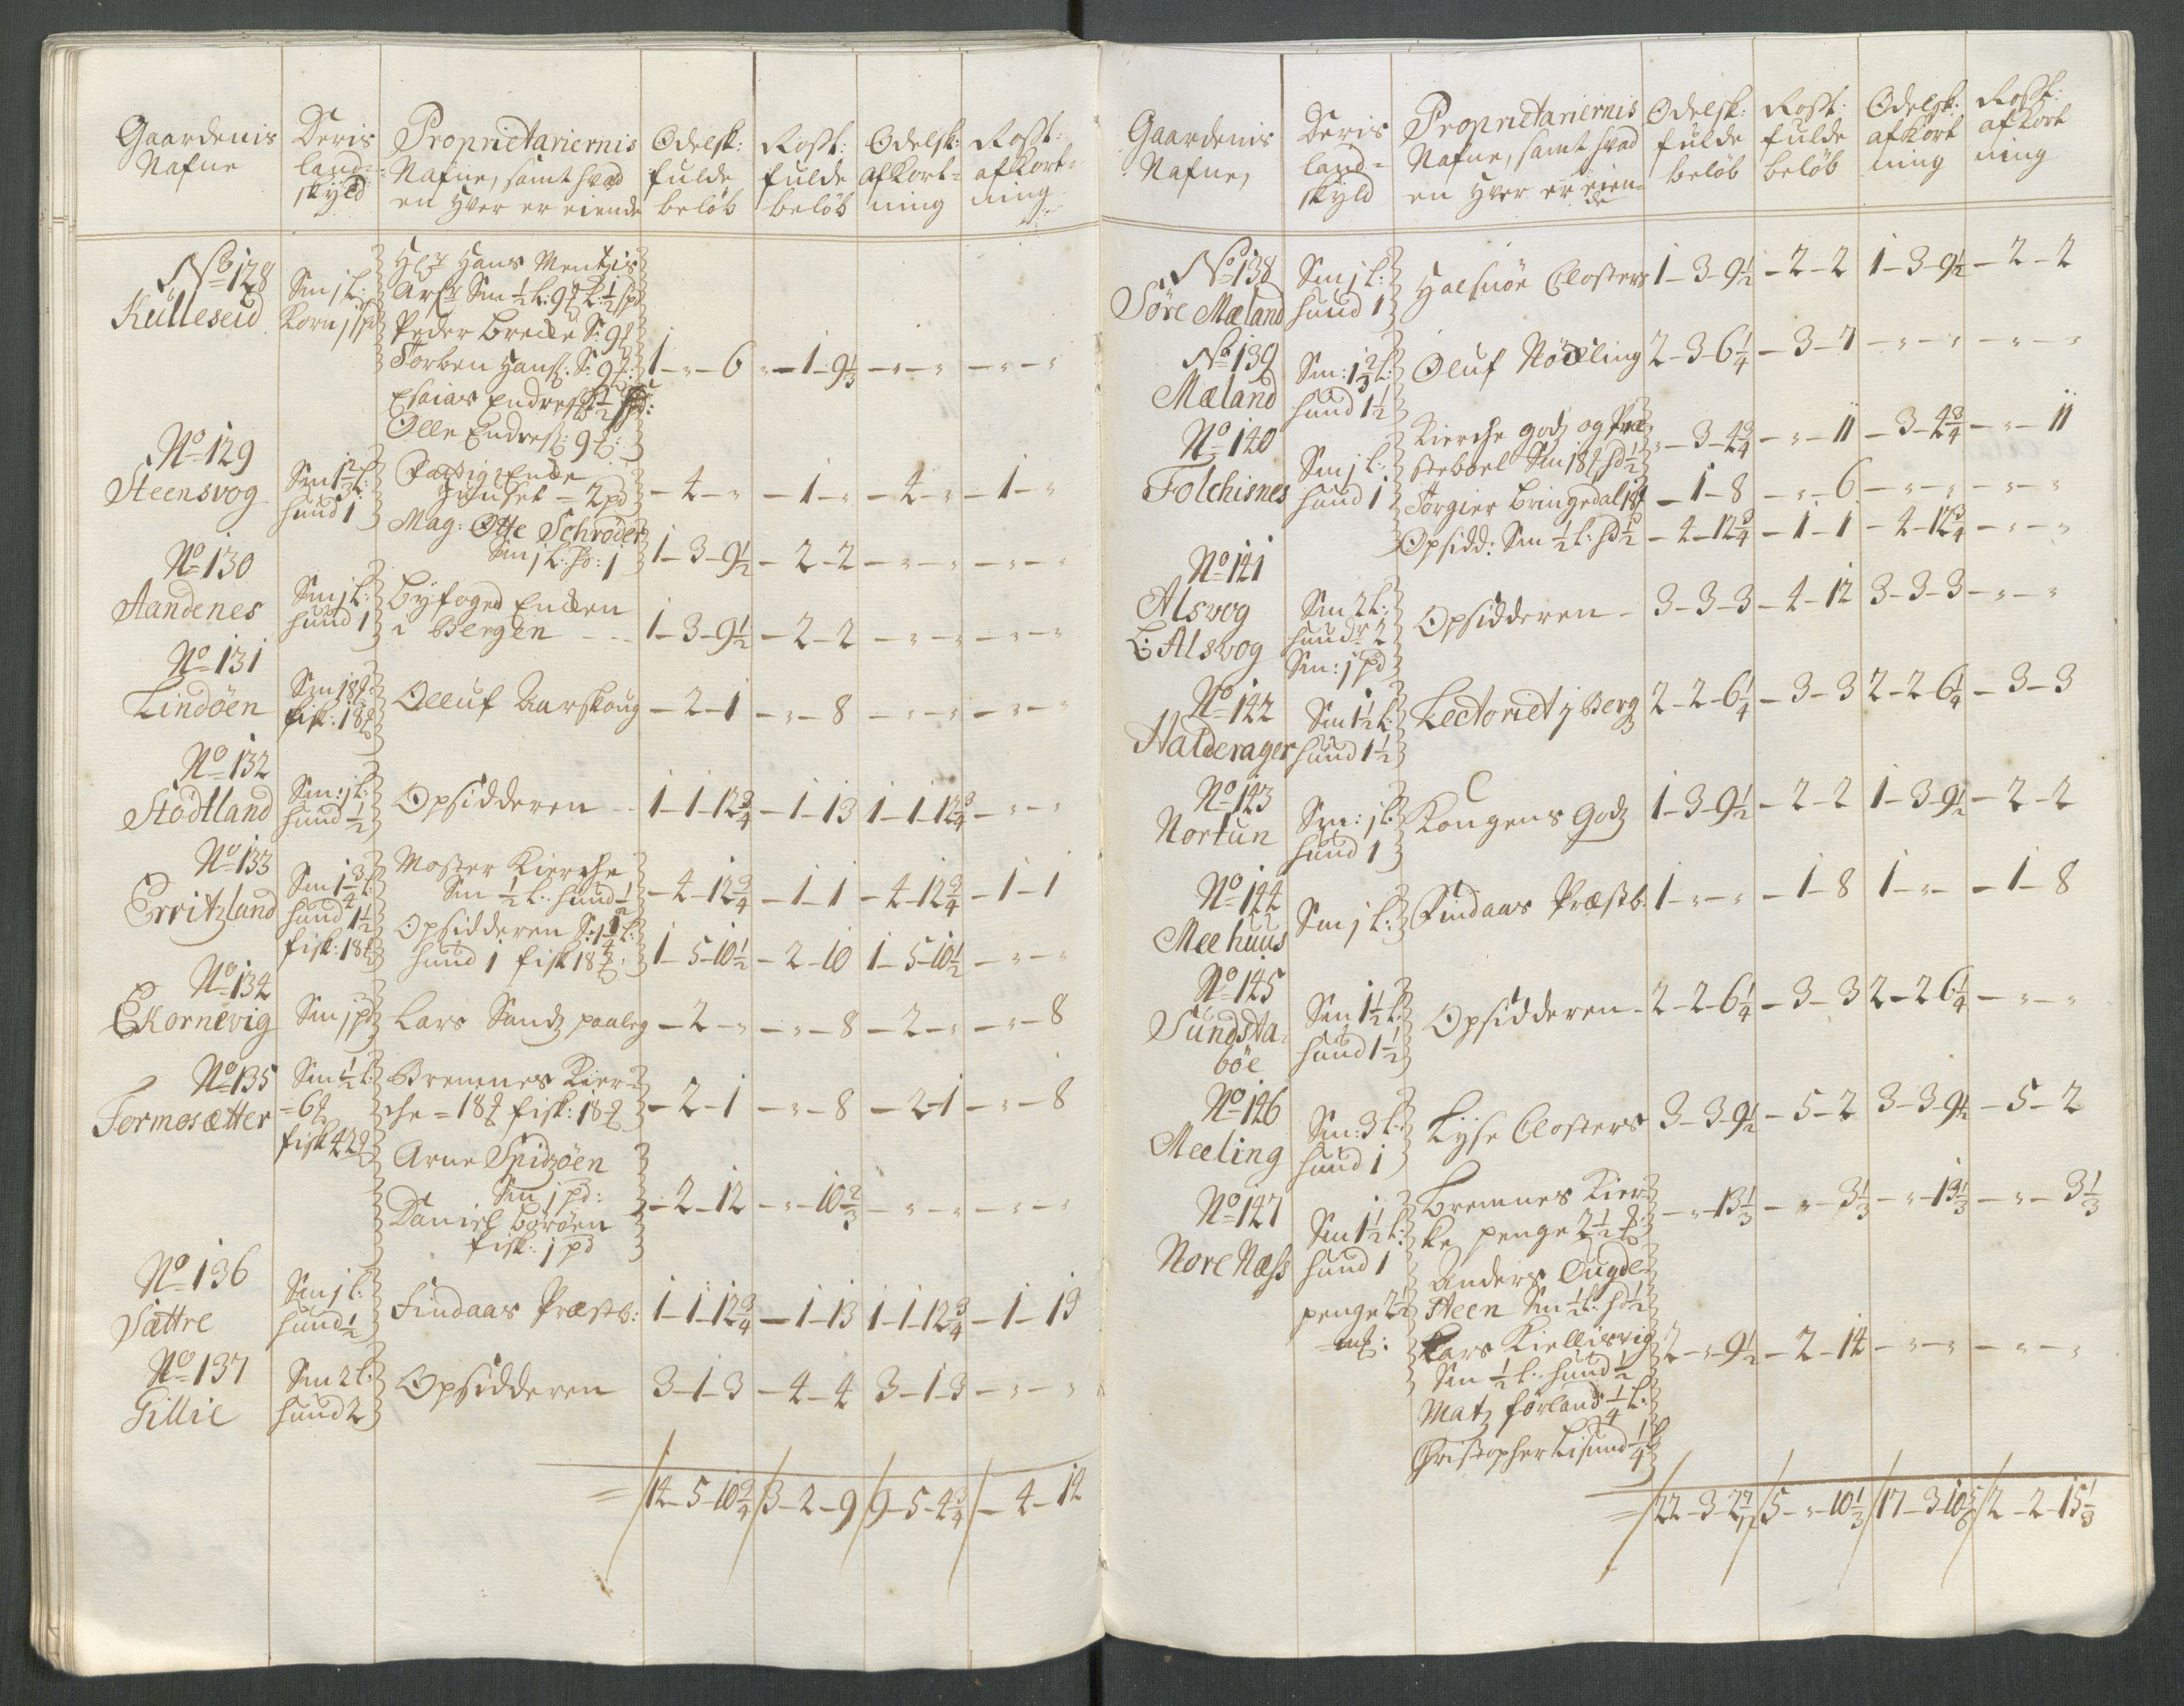 Gaardenis Nafne
Deris land= skyld
Proprietariernis Nafne, samt hvad en hver er eiende
Odelsk: fulde beløb
Rosst: fulde beløb
Odelsk: afkort= ning
Rosst: afkort= ning
No 128 Külleseid
Sm 1 l: Korn 1 spd
Hans Mentzis
Arf: Sm ½ l: 9
Peder Brede S: 9
Torben Hanss: S: 9
1 - " - 6 " - 1 - 9⅓ - " - " - " - "
Esaias Endress:
Olle Endress: 9
No 129 Steensvog
Sm 1⅔ l: hund 1
Fattig Enke
Huuset = 2 pd
- 4 - " - 1 - " - 4 - " - 1 - "
Mag: Otte Schrøder
Sm 1 l: hd: 1
1 - 3 - 9½ - 2 - 2 - " - " - " - "
No 130 Aandenes
Sm 1 l: hund 1
Byfoged Enken
i Bergen
1 - 3 - 9½ - 2 - 2 - " - " - " - "
No 131 Lindøen
Sm 18 fisk: 18
Olluf Aarskoug
- 2 - 1 - " - 8 - " - " - " - "
No 132 Stødtland
Sm: 1 l: hund ½
Opsidderen
1 - 1 - 12¾ - 1 - 13 1 - 1 - 12¾ - " - "
No 133 Erritzland
Sm 1¾ l: hund 1½ fisk: 18
Moster Kierche
Sm ½ l: hund ½
- 4 - 12¾ - 1 - 1 - 4 - 12¾ - 1 - 1
Opsidderen S: 1¼ l:
hund 1 fisk 18
1 - 5 - 10½ - 2 - 10 1 - 5 - 10½ - " - "
No 134 Ekornevig
Sm 1 pd
Lars Sundz paaleg
- 2 - " - " - 8 - 2 - " - " - 8
No 135 Formosætter
Sm ½ l: = 6 fisk 42
Bremnes Kier=
che = 18 fisk: 18
- 2 - 1 - " - 8 - 2 - 1 - " - 8
Arne Spidzøen
Sm 1 pd:
Daniel Borøen
fisk: 1 pd
- 2 - 12 - " - 10⅔ - " - " - " - "
No 136 Sættre
Sm 1 l: hund ½
Findaas Præstb:
1 - 1 - 12¾ - 1 - 13 1 - 1 - 12¾ - 1 - 13
No 137 Gillie
Sm 2 l: hund 2
Opsidderen
3 - 1 - 3 - 4 - 4 3 - 1 - 3 - " - "
= / 14 - 5 - 10¾ / 3 - 2 - 9 / 9 - 5 - 4¾ / - 4 - 14
Gaardenis Nafne,
Deris land= skyld
Proprietariernis Nafne, samt hvad en hver er eien= de
Odelsk: fulde beløb
Rosst: fulde beløb
Odelsk: afkort ning
Rosst: afkort ning
No 138 Søre Mæland
Sm 1 l: hund 1
Halsnøe Closters
1 - 3 - 9½ - 2 - 2 1 - 3 - 9½ - 2 - 2
No 139 Mæland
Sm: 1⅔ l: hund 1½
Oluf Nødling
2 - 3 - 6¼ - 3 - 7 - " - " - " - "
No 140 Folchisnes
Sm 1 l: hund 1
Kierche godz og Præ
steboel Sm 18 hd ½
" - 3 - 4¾ - " - 11 - 3 - 4¾ - " - 11
Torgier Bringedal 18
- 1 - 8 - " - 6 - " - " - " - "
Opsidd: Sm ½ l: hd ½
- 4 - 12¾ - 1 - 1 - 4 - 12¾ - " - "
No 141 Alsvog L: Alsvog
Sm 2 l: hundr 2 Sm: 1 pd
Opsidderen
3 - 3 - 3 - 4 - 12 3 - 3 - 3 - " - "
No 142 Halderager
Sm 1½ l: hund 1½
Lectoriet j Berg
2 - 2 - 6¼ - 3 - 3 2 - 2 - 6¼ - 3 - 3
No 143 Nortun
Sm: 1 l: hund 1
Kongens Godz
1 - 3 - 9½ - 2 - 2 1 - 3 - 9½ - 2 - 2
No 144 Meehuus
Sm 1 l:
Findaas Præstb:
1 - " - " - 1 - 8 1 - " - - 1 - 8
No 145 Sundsta= bøe
Sm 1½ l: hund 1½
Opsidderen
2 - 2 - 6¼ - 3 - 3 2 - 2 6¼ - " - "
No 146 Meeling
Sm: 3 l: hund 1
Lyse Closters
3 - 3 - 9½ - 5 - 2 3 - 3 - 9½ - 5 - 2
No 147 Nore Næss
Sm 1½ l: hund 1 penge 2½
Bremnes Kier=
ke penge 2½
- " - 13⅓ - " - 3⅓ - " - 13⅓ - " - 3⅓
Anders
Steen Sm ½ l: hd ½
Lars Kiellisvig
Sm ½ l: hund ½
2 - " - 9½ - 2 - 14 - " - " - " - "
Matz Førland ¼ l:
Christopher Lisund ¼
= / 22 - 3 - 2 / 5 - " - 10⅓ / 17 - 3 - 10⅚ / 2 - 2 - 15⅓